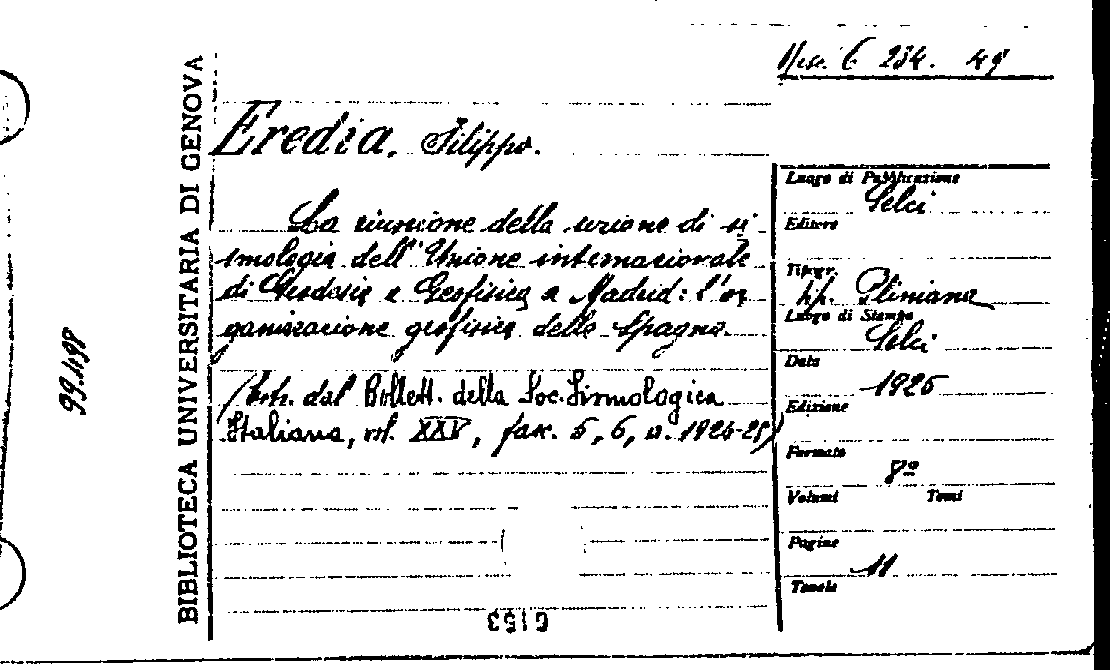 Misc. C 234. 49
BIBLIOTECA UNIVERSITARIA DI GENOVA
Eredia, Filippo.
La riunione della sezione di si
smologia dell'Unione internazionale
di Geodesia e Geofisica a Madrid: l'or
ganizzazione geofisica della Spagna.
(Estr. dal Bollett. della Soc. Sismologica
Italiana, vol. XXV, fasc. 5, 6, a. 1924-25)
Luogo di Pubblicazione
Selci
Editore
Tipogr.
tip. Pliniana
Luogo di Stampa
Selci
Data
1925
Edizione
Formato
8º
Volumi Tomi
Pagine
11
Tavole
0153